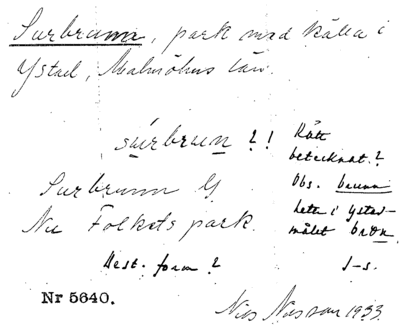 Surbrunn, park med källa i
Ystad, Malmöhus län.
súrbrun ? !
Rätt
betecknat?
Obs. brunn
hette i Ystad-
målet brøn.
J-s.
Surbrunn G
Nu Folkets park.
Best. form ?
Nr 5640.
Nils Nilsson 1933